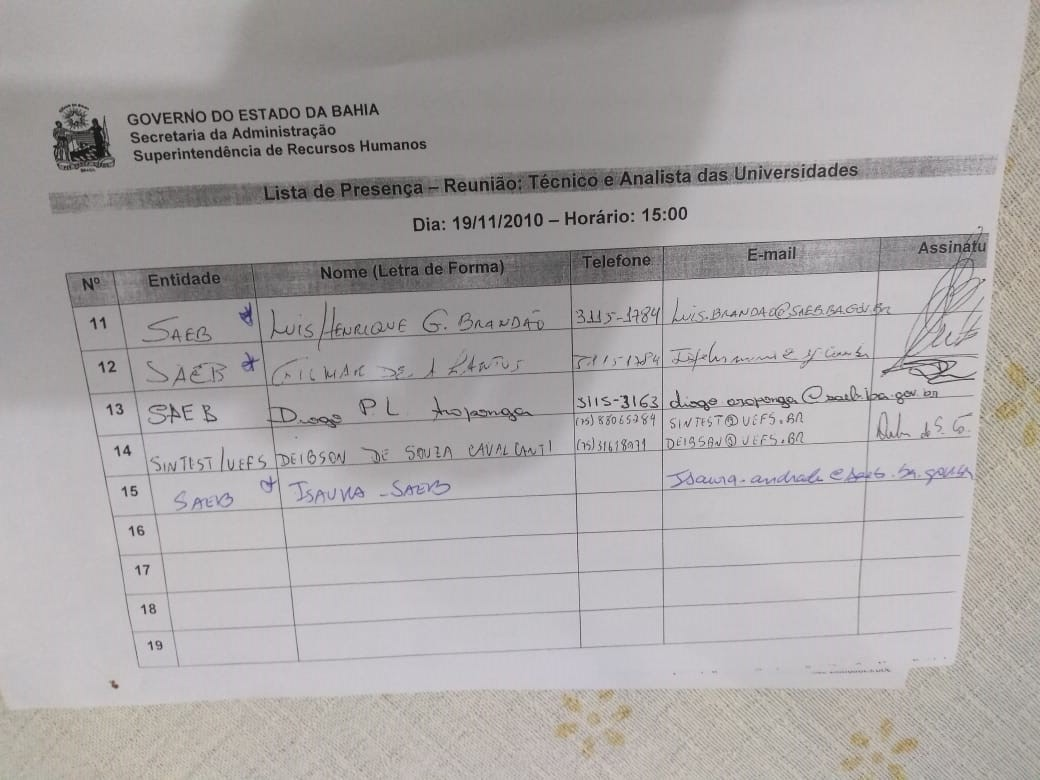 GOVERNO DO ESTADO DA BAHIA
Secretaria da Administração
Superintendência de Recursos Humanos
Lista de Presença – Reunião: Técnico e Analista das Universidades
Dia: 19/11/2010 – Horário: 15:00
Nº Entidade Nome (Letra de Forma) Telefone E-mail Assinatu
11 SAEB LUIS HENRIQUE G. BRANDÃO 3115-1784 LUIS.BRANDAO@SAEB.BA.GOV.BR
12 SAEB GILMAR DE
13 SAEB Diogo P L Araponga 3115-3163 diogo.araponga@saeb.ba.gov.br
14 SINTEST/UEFS DEIBSON DE SOUZA CAVALCANTI SINTEST@UEFS.BR
DEIBSON@UEFS.BR
15 SAEB ISAURA - SAEB Isaura.andrade@saeb.ba.gov.br
16
17
18
19